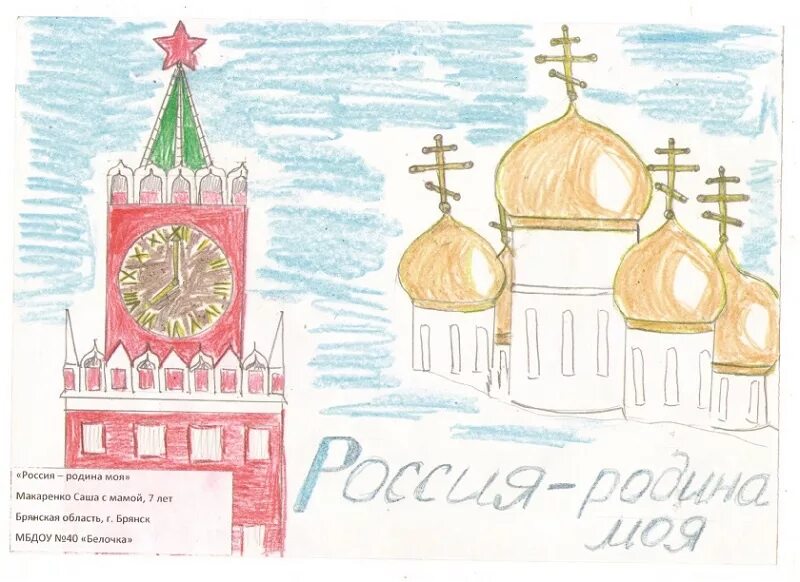 Россия - родина
моя
«Россия – родина моя»
Макаренко Саша с мамой, 7 лет
Брянская область, г. Брянск
МБДОУ №40 «Белочка»